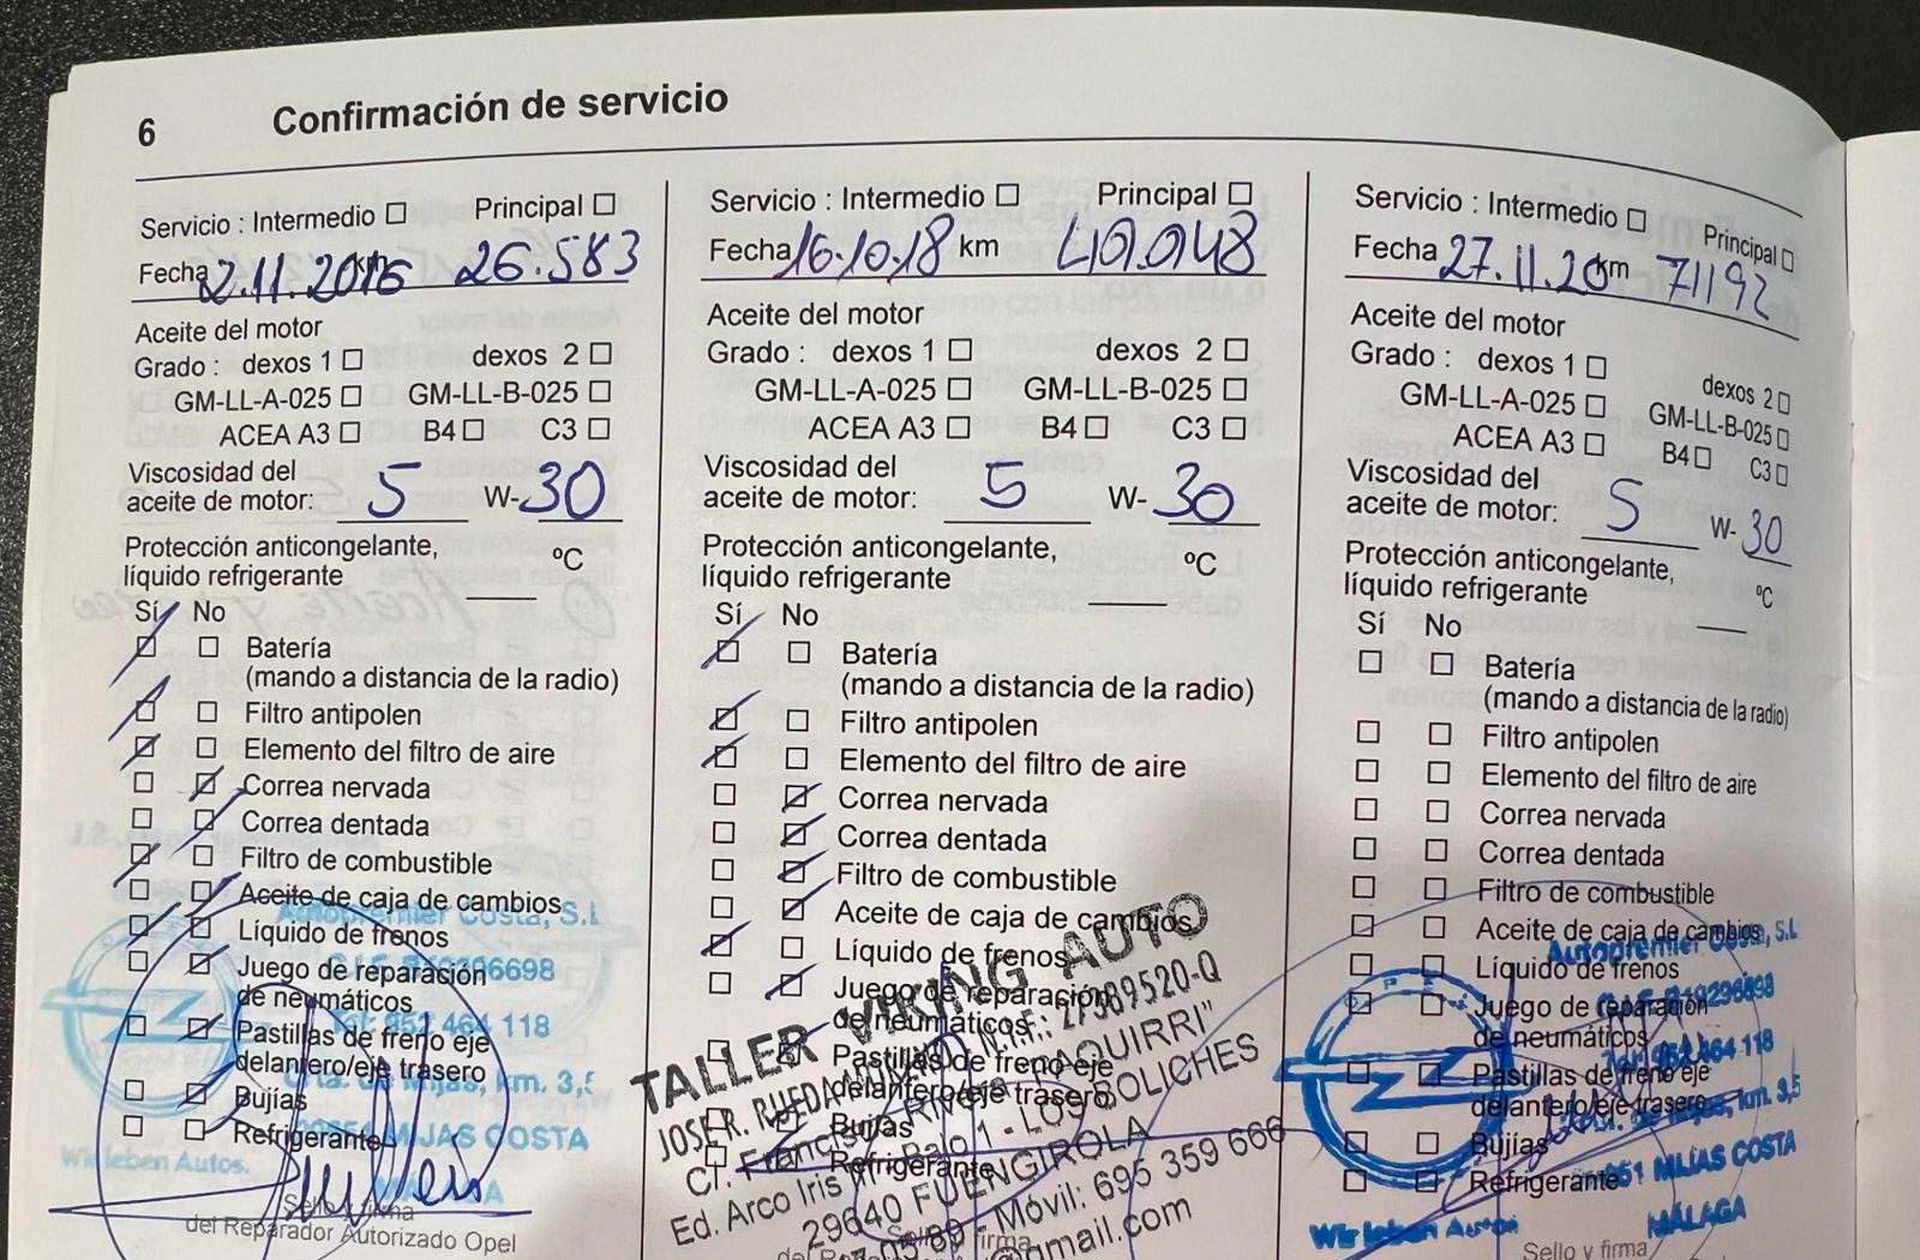 6 Confirmación de servicio
Servicio : Intermedio Principal
Fecha 2.11.2016 km 26.583
Aceite del motor
Grado : dexos 1 dexos 2
GM-LL-A-025 GM-LL-B-025
ACEA A3 B4 C3
Viscosidad del
aceite de motor: 5 W-30
Protección anticongelante,
líquido refrigerante ºC
Sí No
Batería
(mando a distancia de la radio)
Filtro antipolen
Elemento del filtro de aire
Correa nervada
Correa dentada
Filtro de combustible
Aceite de caja de cambios
Líquido de frenos
Juego de reparación
de neumáticos
Pastillas de freno eje
delantero/eje trasero
Bujías
Refrigerante
Autopremier Costa, S.L
464 118
Ctra. de Mijas, km. 3,5
MIJAS COSTA
Wir leben Autos.
Sello y firma
del Reparador Autorizado Opel
Servicio : Intermedio Principal
Fecha 16.10.18 km 49.948
Aceite del motor
Grado : dexos 1 dexos 2
GM-LL-A-025 GM-LL-B-025
ACEA A3 B4 C3
Viscosidad del
aceite de motor: 5 W-30
Protección anticongelante,
líquido refrigerante ºC
Sí No
Batería
(mando a distancia de la radio)
Filtro antipolen
Elemento del filtro de aire
Correa nervada
Correa dentada
Filtro de combustible
Aceite de caja de cambios
Líquido de frenos
Juego de reparación
de neumáticos
Pastillas de freno eje
delantero/eje trasero
Bujías
Refrigerante
TALLER VIKING AUTO
JOSE R. RUEDA N.I.F.: 27389520-Q
C/. Francisco Rivera "PAQUIRRI"
Ed. Arco Iris Bajo 1 - LOS BOLICHES
29640 FUENGIROLA
Móvil: 695 359 666
@gmail.com
Sello y firma
Servicio : Intermedio Principal
Fecha 27.11.20 km 71192
Aceite del motor
Grado : dexos 1 dexos 2
GM-LL-A-025 GM-LL-B-025
ACEA A3 B4 C3
Viscosidad del
aceite de motor: 5 W-30
Protección anticongelante,
líquido refrigerante ºC
Sí No
Batería
(mando a distancia de la radio)
Filtro antipolen
Elemento del filtro de aire
Correa nervada
Correa dentada
Filtro de combustible
Aceite de caja de cambios
Líquido de frenos
Juego de reparación
de neumáticos
Pastillas de freno eje
delantero/eje trasero
Bujías
Refrigerante
Autopremier Costa, S.L
464 118
km. 3,5
MIJAS COSTA
MÁLAGA
Wir leben Autos
Sello y firma